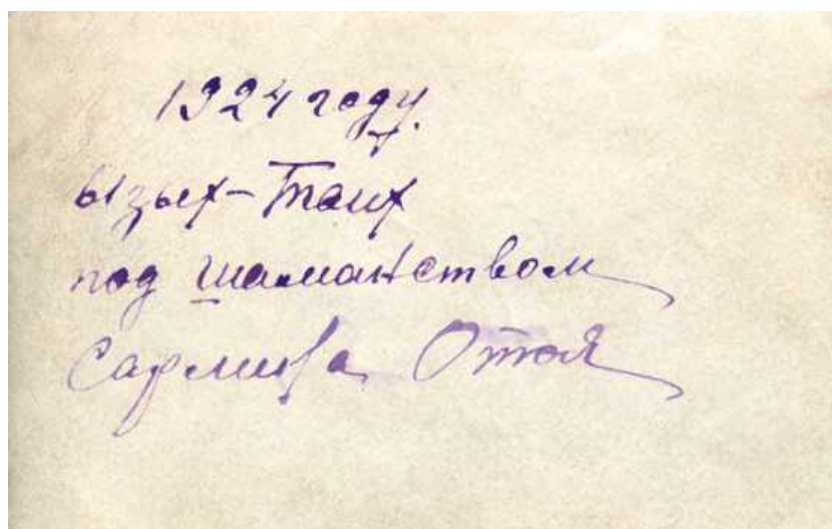 1924 году.
ызых-Таих
под шаманством
Сарлина Отоя